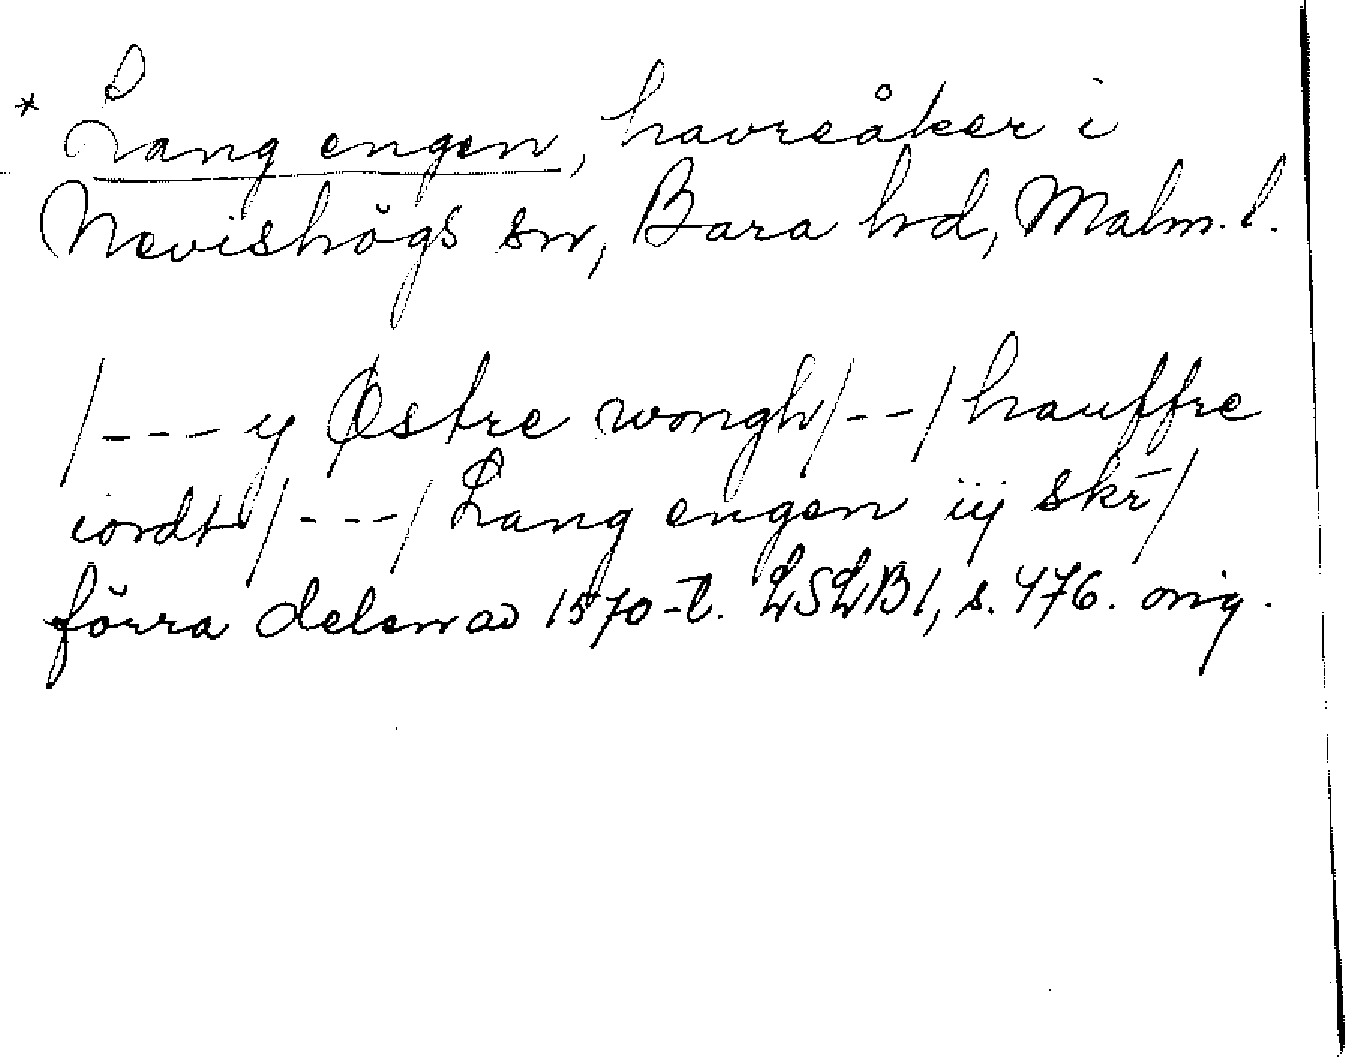 * Lang engen, havreåker i
Nevishögs sn, Bara hd, Malm. l.
/---y Østre wongh/--/hauffre
iordt/---/Lang engen iij skr̄/
förra delen av 1570-t. LSLB1, s. 476. orig.